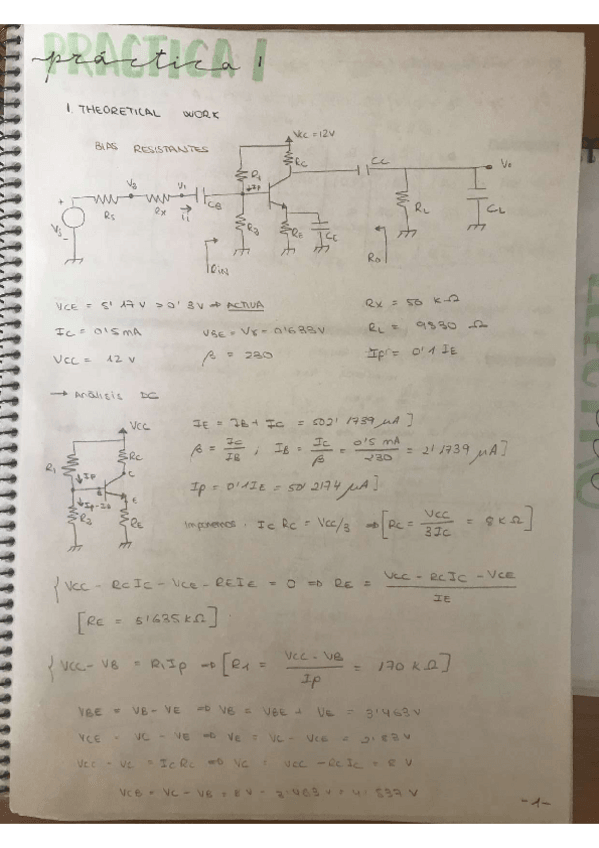 PRACTICA 1
práctica 1
1. THEORETICAL WORK
BIAS RESISTANTES
VCC = 12V
RC
CC
Vo
R1
↓IP
VB
V1
CB
RS
RX
i1
VS
R2
RE
CC
RL
CL
RIN
RO
VCE = 5'17V > 0'3V ⇒ ACTIVA
RX = 50 kΩ
IC = 0'5mA
VBE = Vγ = 0'633V
RL = 9830 Ω
VCC = 12 V
β = 230
IP = 0'1 IE
→ Análisis DC
VCC
RC
R1
IP
C
B
E
R2
RE
IE = IB + IC = 502'1739 μA]
β = IC/IB ; IB = IC/β = 0'5 mA/230 = 2'1739 μA]
IP = 0'1IE = 50'2174 μA]
Imponemos: IC RC = VCC/3 ⇒ [RC = VCC/3IC = 8 kΩ]
{ VCC - RCIC - VCE - REIE = 0 ⇒ RE = VCC - RCIC - VCE/IE
[RE = 5'635 kΩ]
{ VCC - VB = R1IP ⇒ [R1 = VCC - VB/IP = 170 kΩ]
VBE = VB - VE ⇒ VB = VBE + VE = 3'463V
VCE = VC - VE ⇒ VE = VC - VCE = 2'83V
VCC - VC = ICRC ⇒ VC = VCC - RCIC = 8 V
VCB = VC - VB = 8V - 3'463V = 4'537V
-1-